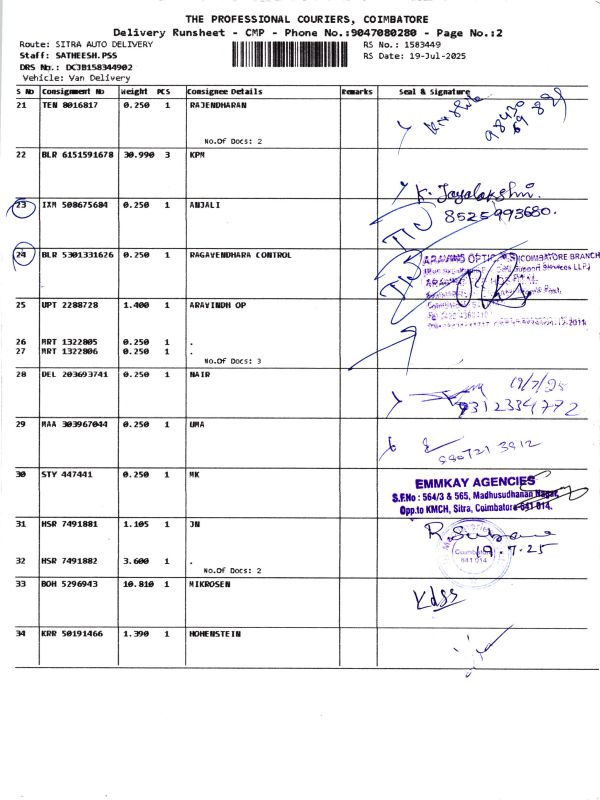 THE PROFESSIONAL COURIERS, COIMBATORE
Delivery Runsheet - CMP - Phone No.:9047080280 - Page No.:2
Route: SITRA AUTO DELIVERY
RS No.: 1583449
Staff: SATHEESH.PSS
RS Date: 19-Jul-2025
DRS No.: DCJB158344902
Vehicle: Van Delivery
S No Consignment No Weight PCS Consignee Details Remarks Seal & Signature
21 TEN 8016817 0.250 1 RAJENDHARAN
98430
69 891
No.Of Docs: 2
22 BLR 6151591678 30.990 3 KPM
K. Jayalakshmi.
23 IXM 508675684 0.250 1 ANJALI
8525993680.
24 BLR 5301331626 0.250 1 RAGAVENDHARA CONTROL
ARAVIND OPTIC COIMBATORE BRANCH
Support Services LLP)
25 UPT 2288728 1.400 1 ARAVINDH OP
26 MRT 1322805 0.250 1 .
27 MRT 1322806 0.250 1 .
No.Of Docs: 3
28 DEL 203693741 0.250 1 NAIR
19/7/25
9312334772
29 MAA 303967044 0.250 1 UMA
30 STY 447441 0.250 1 MK
EMMKAY AGENCIES
S.F.No : 564/3 & 565, Madhusudhanan Nagar,
Opp.to KMCH, Sitra, Coimbatore-641 014.
31 HSR 7491881 1.105 1 JN
19.7.25
Coimbatore
641 014
32 HSR 7491882 3.600 1 .
No.Of Docs: 2
33 BOH 5296943 10.810 1 MIKROSEN
34 KRR 50191466 1.390 1 HOHENSTEIN